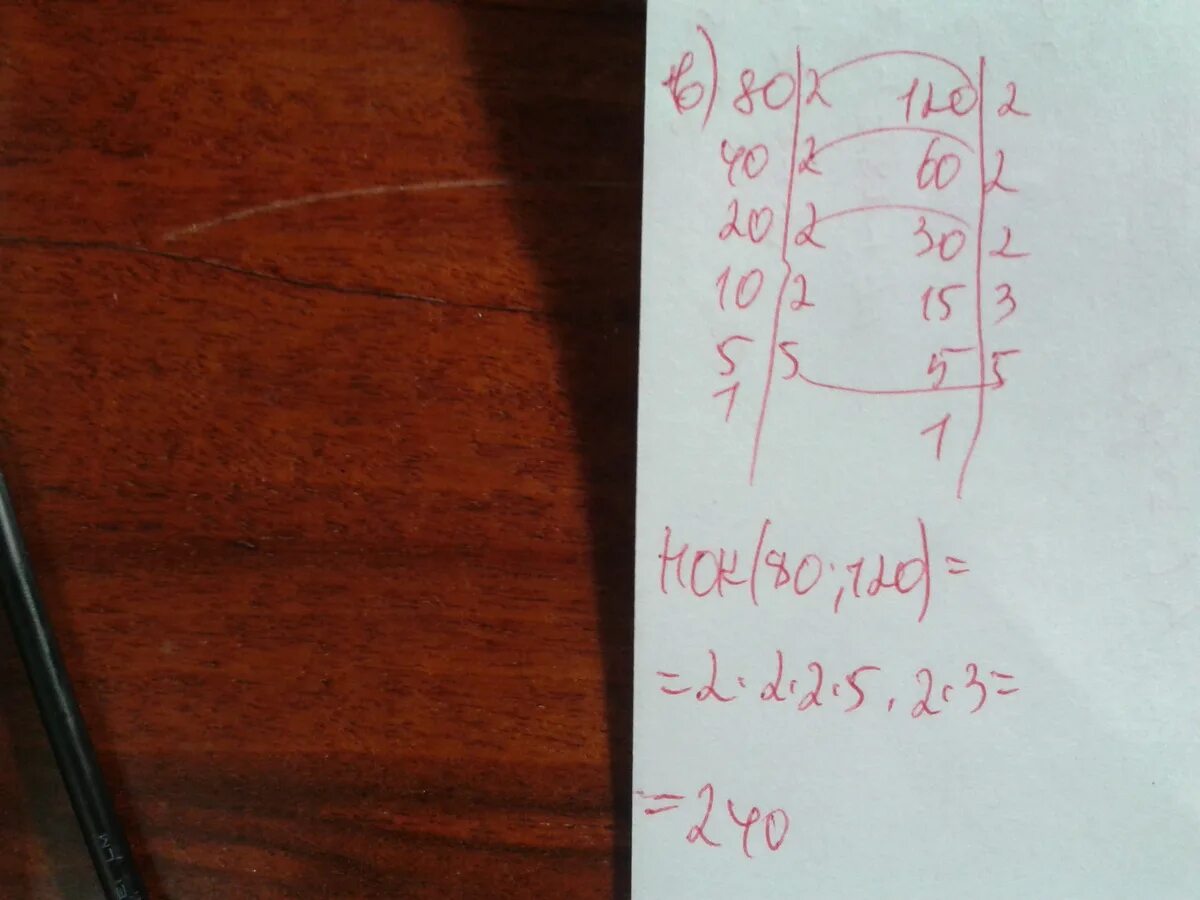 в) 80|2 120|2
40|2 60|2
20|2 30|2
10|2 15|3
5|5 5|5
1 1
НОК(80;120)=
=2·2·2·5·2·3=
=240